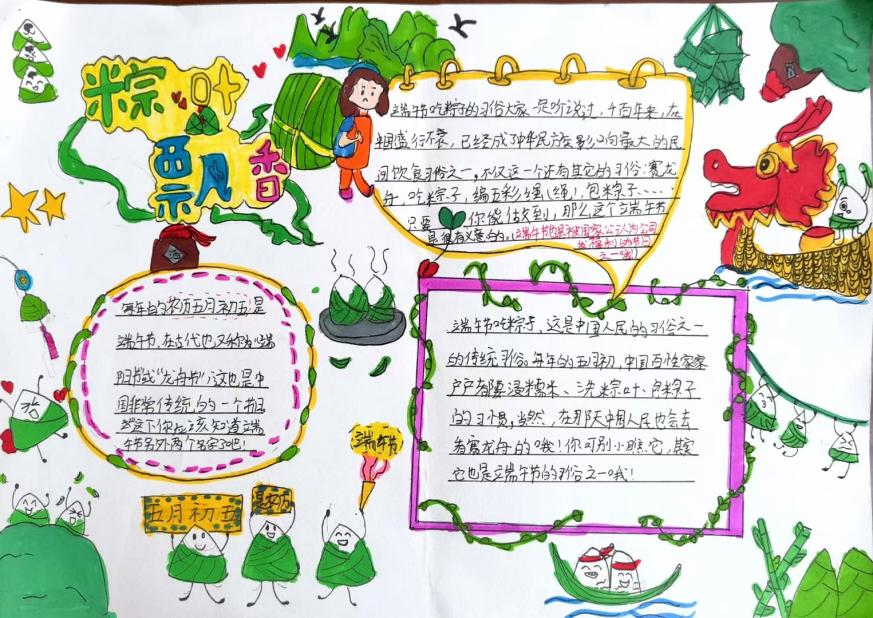 粽叶
飘香
端午节吃粽子的习俗大家一定听说过,千百年来,在
中国盛行不衰,已经成了中华民族影响最大的民
间饮食习俗之一,不仅这一个还有其它的习俗:赛龙
舟,吃粽子,编五彩绳(绳)包粽子……
只要你能做到,那么这个端午节
是很有意义的。(端午节也是被国家公认为公司
放福利的节日
之一哦)
每年的农历五月初五是
端午节,在古代也又称为"端
阳节或"龙舟节",这也是中
国非常传统的一个节日
这下你应该知道端
午节另外两个名字了吧!
端午节吃粽子,这是中国人民的习俗之一
的传统习俗。每年的五月初,中国百姓家家
户户都要浸糯米、洗粽叶、包粽子
的习惯,当然,在那天中国人民也会去
看赛龙舟的哦!你可别小瞧它,其实
它也是端午节的习俗之一哦!
端午节
五月初五
是农历